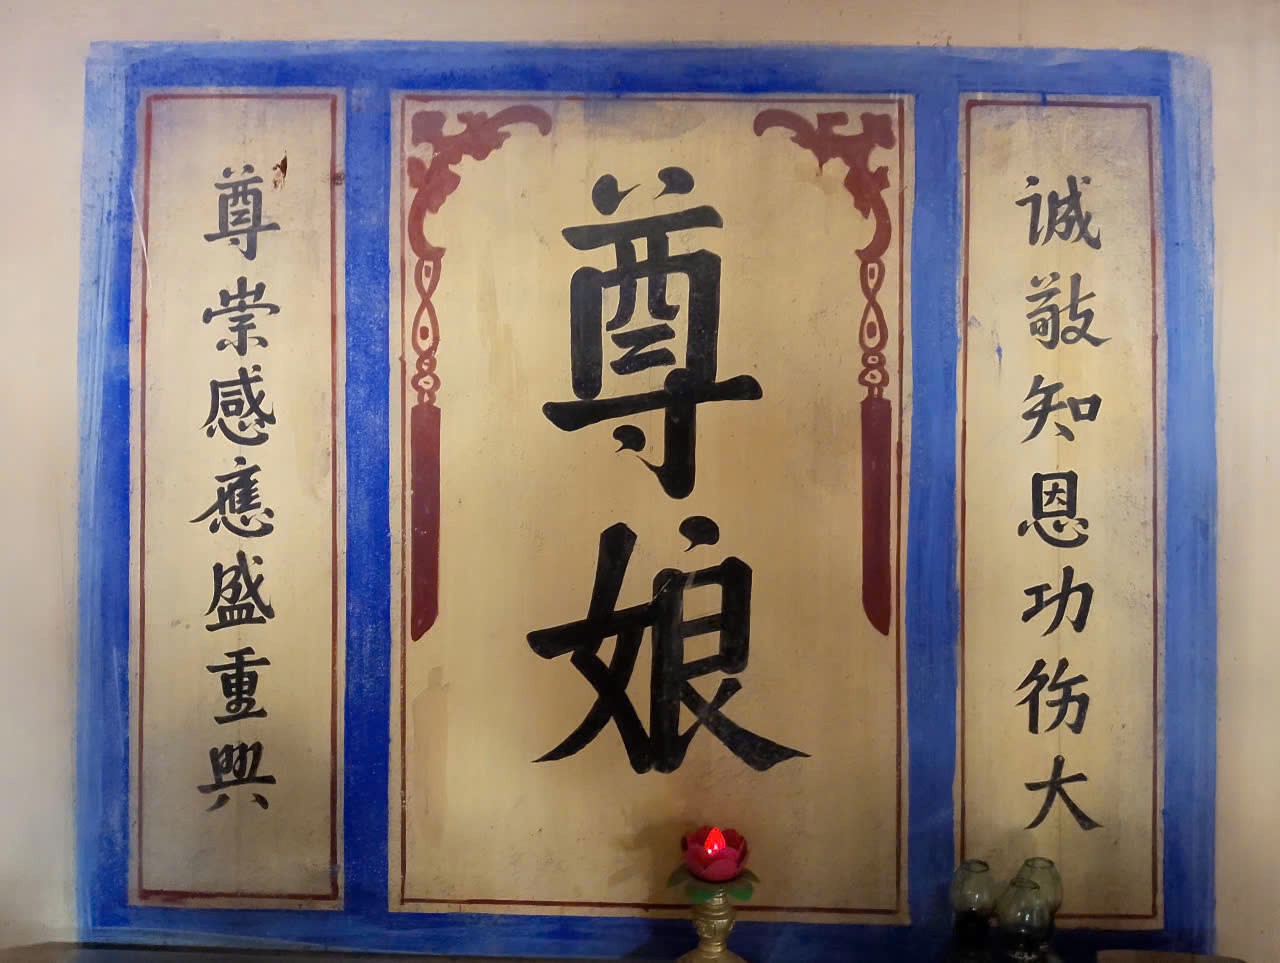 誠敬知恩功大
尊娘
尊崇感應盛重興